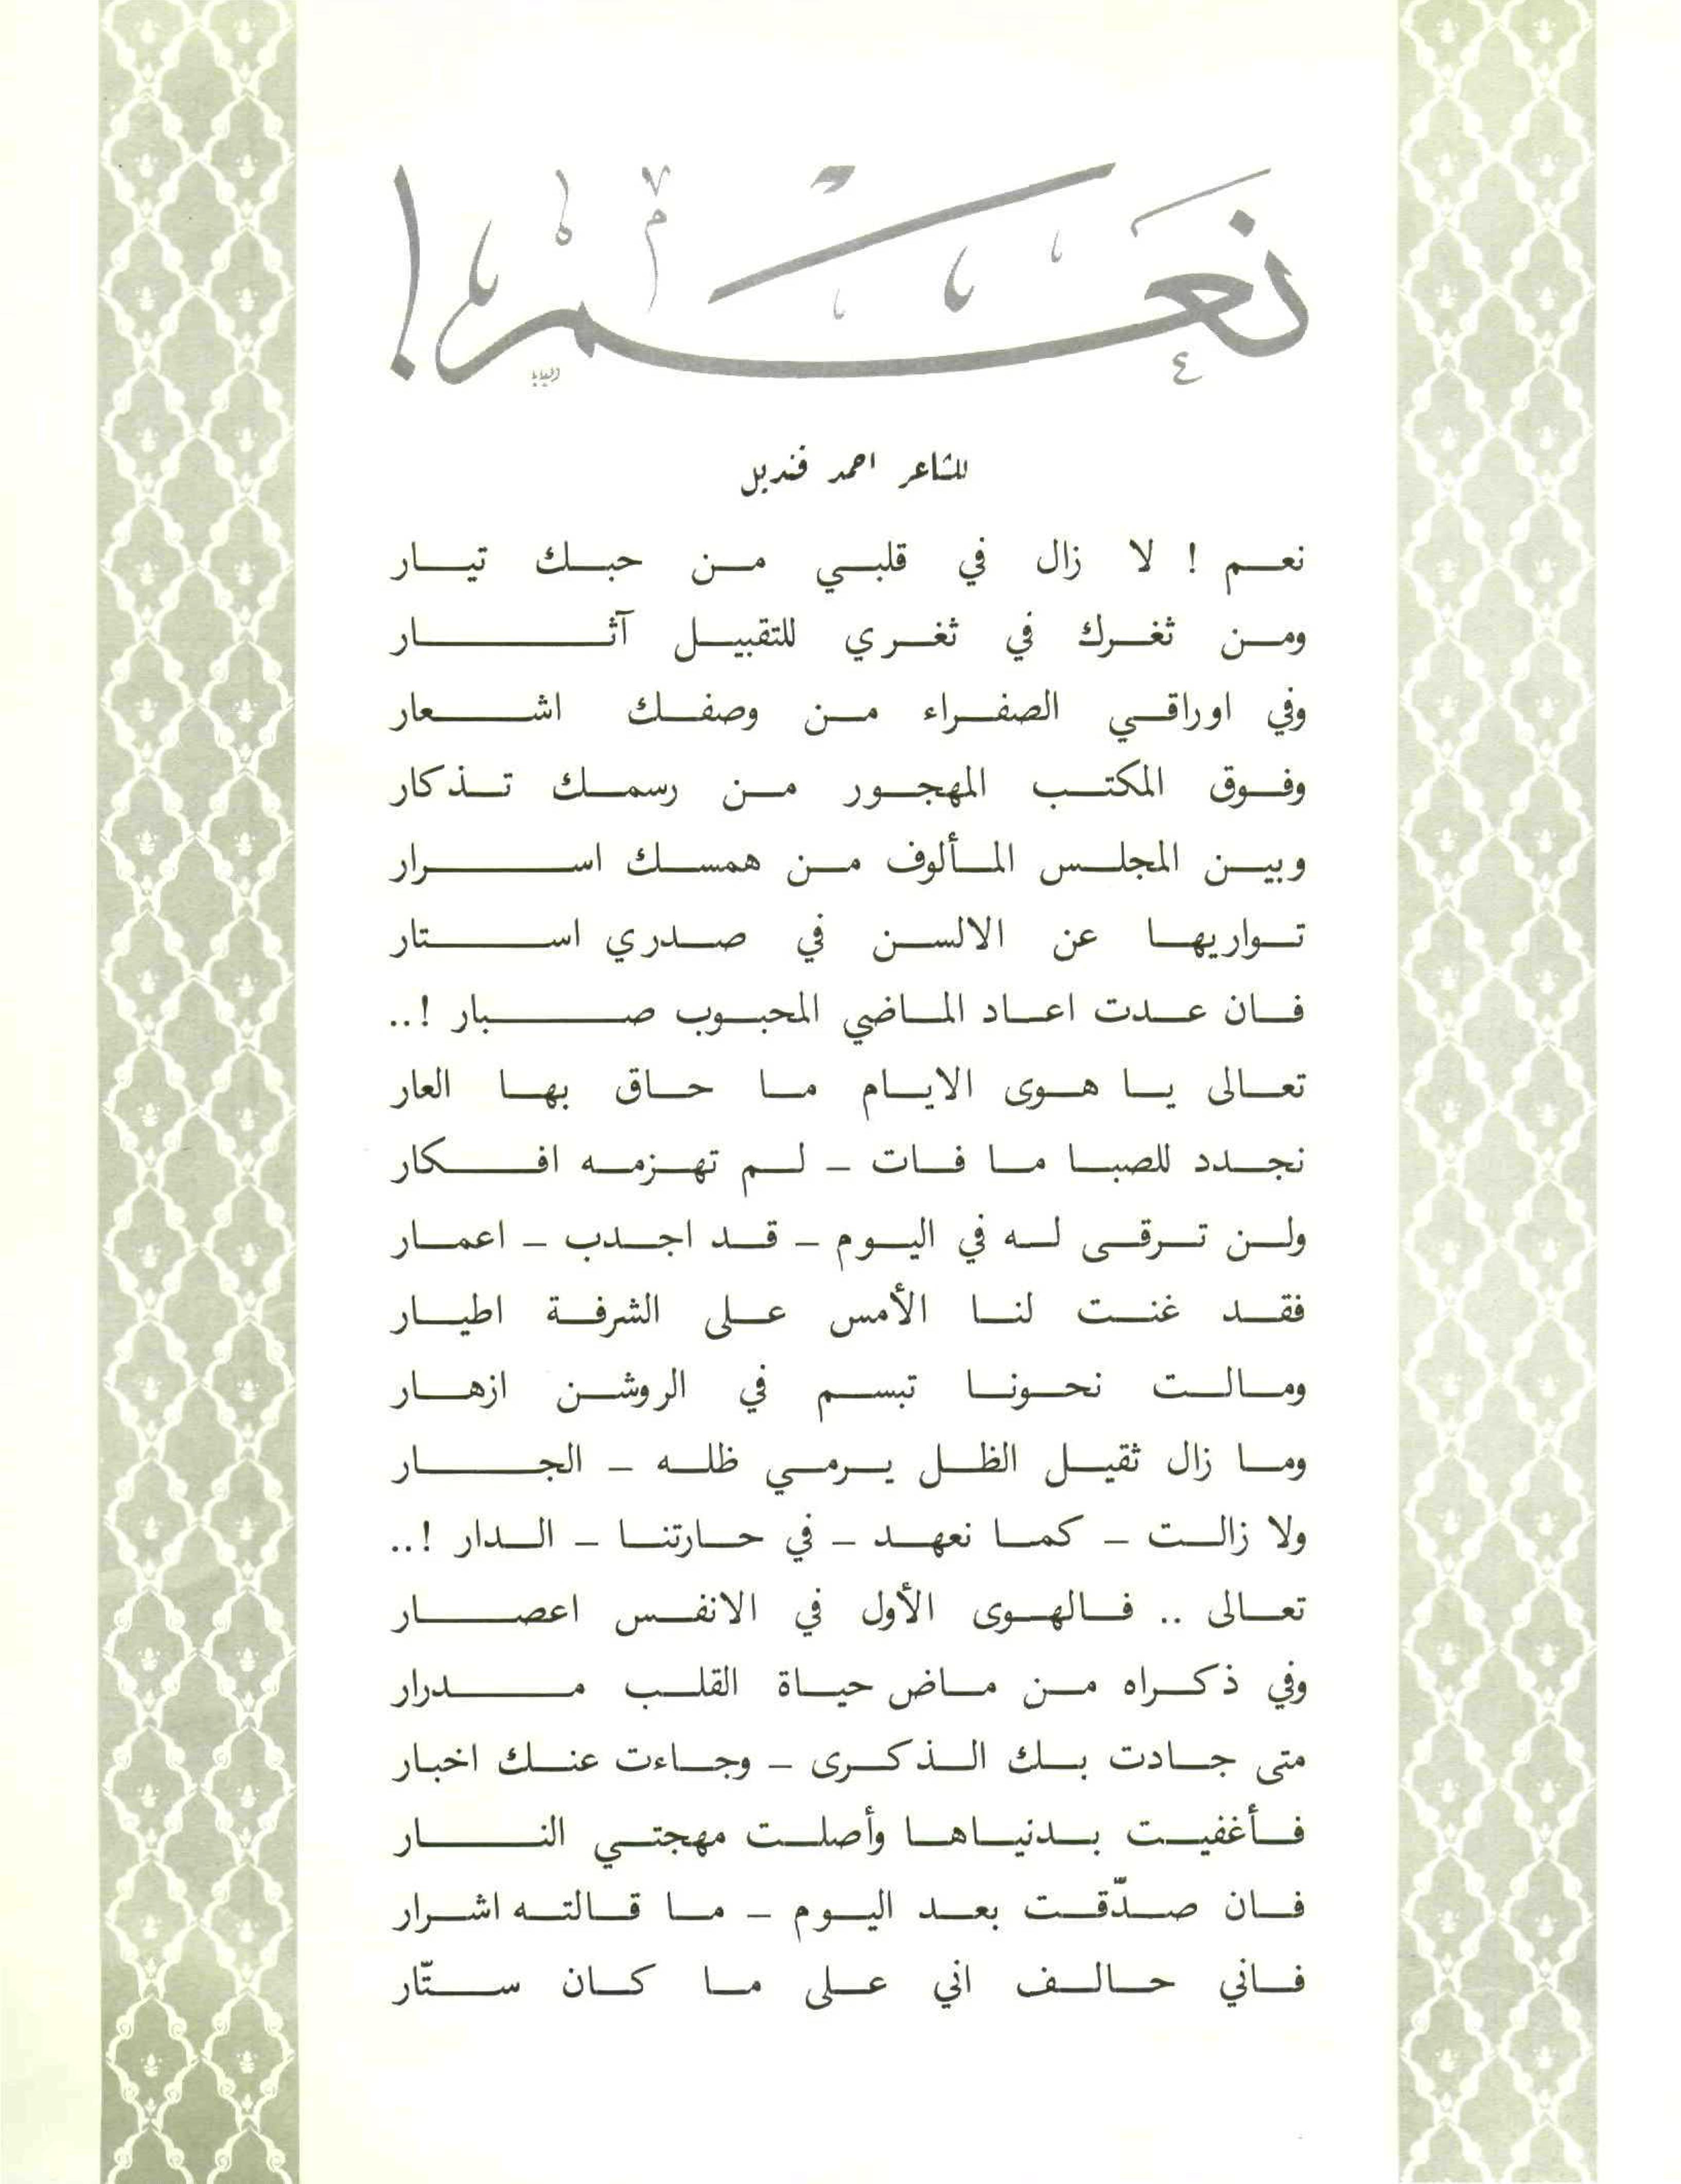 نعم!
للشاعر احمد قنديل
نعم ! لا زال في قلبي من حبك تيار
ومن ثغرك في ثغري للتقبيل آثار
وفي اوراقي الصفراء من وصفك اشعار
وفوق المكتب المهجور من رسمك تذكار
وبين المجلس المألوف من همسك اسرار
تواريها عن الالسن في صدري استار
فان عدت اعاد الماضي المحبوب صبار !..
تعالى يا هوى الايام ما حاق بها العار
نجدد للصبا ما فات – لم تهزمه افكار
ولن ترقى له في اليوم – قد اجدب – اعمار
فقد غنت لنا الأمس على الشرفة اطيار
ومالت نحونا تبسم في الروشن ازهار
وما زال ثقيل الظل يرمي ظله – الجار
ولا زالت – كما نعهد – في حارتنا – الدار !..
تعالى .. فالهوى الأول في الانفس اعصار
وفي ذكراه من ماض حياة القلب مدرار
متى جادت بك الذكرى – وجاءت عنك اخبار
فأغفيت بدنياها وأصلت مهجتي النار
فان صدّقت بعد اليوم – ما قالته اشرار
فاني حالف اني على ما كان ستّار